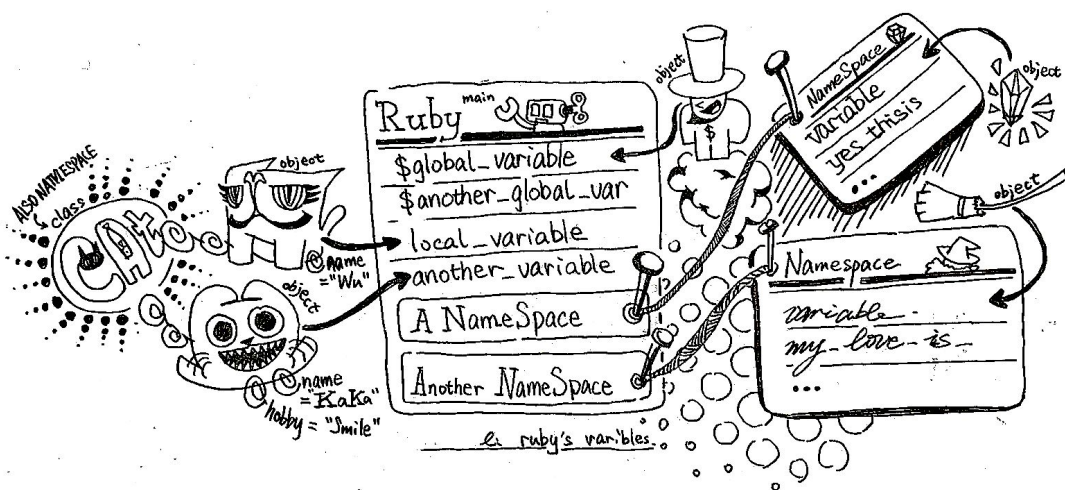 ALSO NAMESPACE
class
CAt
object
name
="Wu"
object
name
="KaKa"
hobby="Smile"
Ruby main
$global_variable
$another_global_var
local_variable
another_variable
A NameSpace
Another NameSpace
ruby's varibles.
object
$
NameSpace
variable
yes_thisis
...
object
object
Namespace
variable
my_love_is_
...